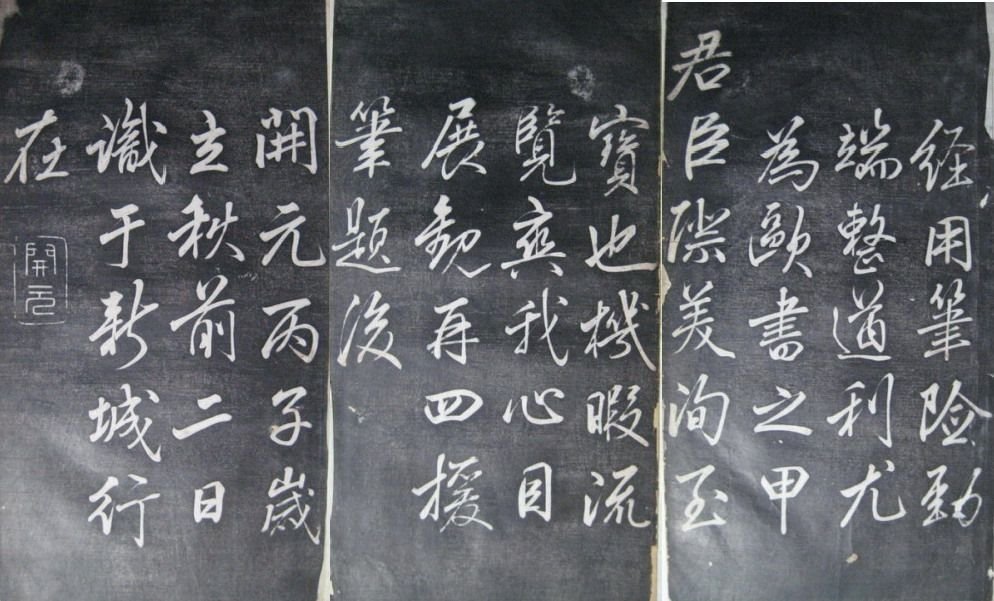 経用筆險勁
端整遒利尤
為歐書之甲
君臣際美洵至
寶也機暇流
覽爽我心目
展觀再四援
筆題後
開元丙子歲
立秋前二日
識于新城行
在
開元